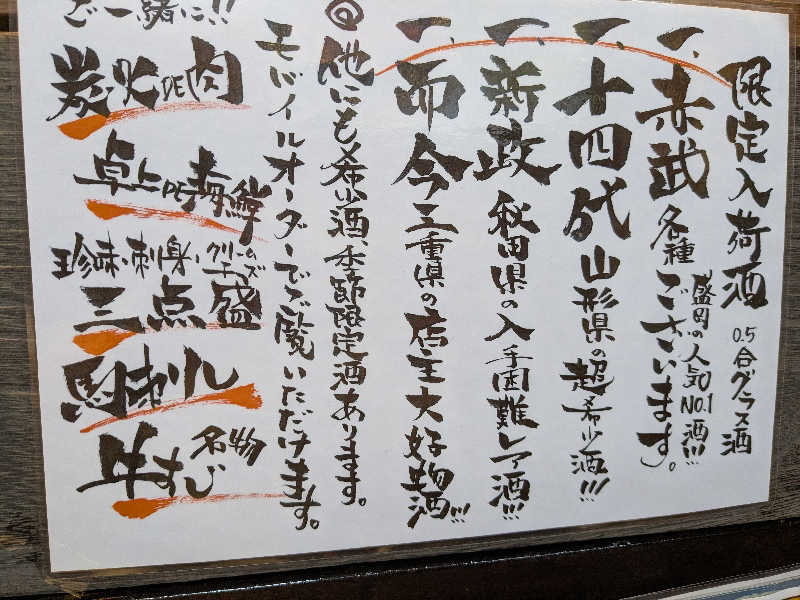 限定入荷酒 0.5合グラス酒
一、赤武 各種ございます。
盛岡の人気NO.1酒!!!
一、十四代 山形県の超希少酒!!!
一、新政 秋田県の入手困難レア酒!!!
一、而今 三重県の店主大好物酒!!!
◎他にも希少酒、季節限定酒あります。
モバイルオーダーでご覧いただけます。
ご一緒に!!
炭火DE肉
卓上DE海鮮
珍味・刺身・クリームチーズ
三点盛
馬刺し
名物
牛すじ